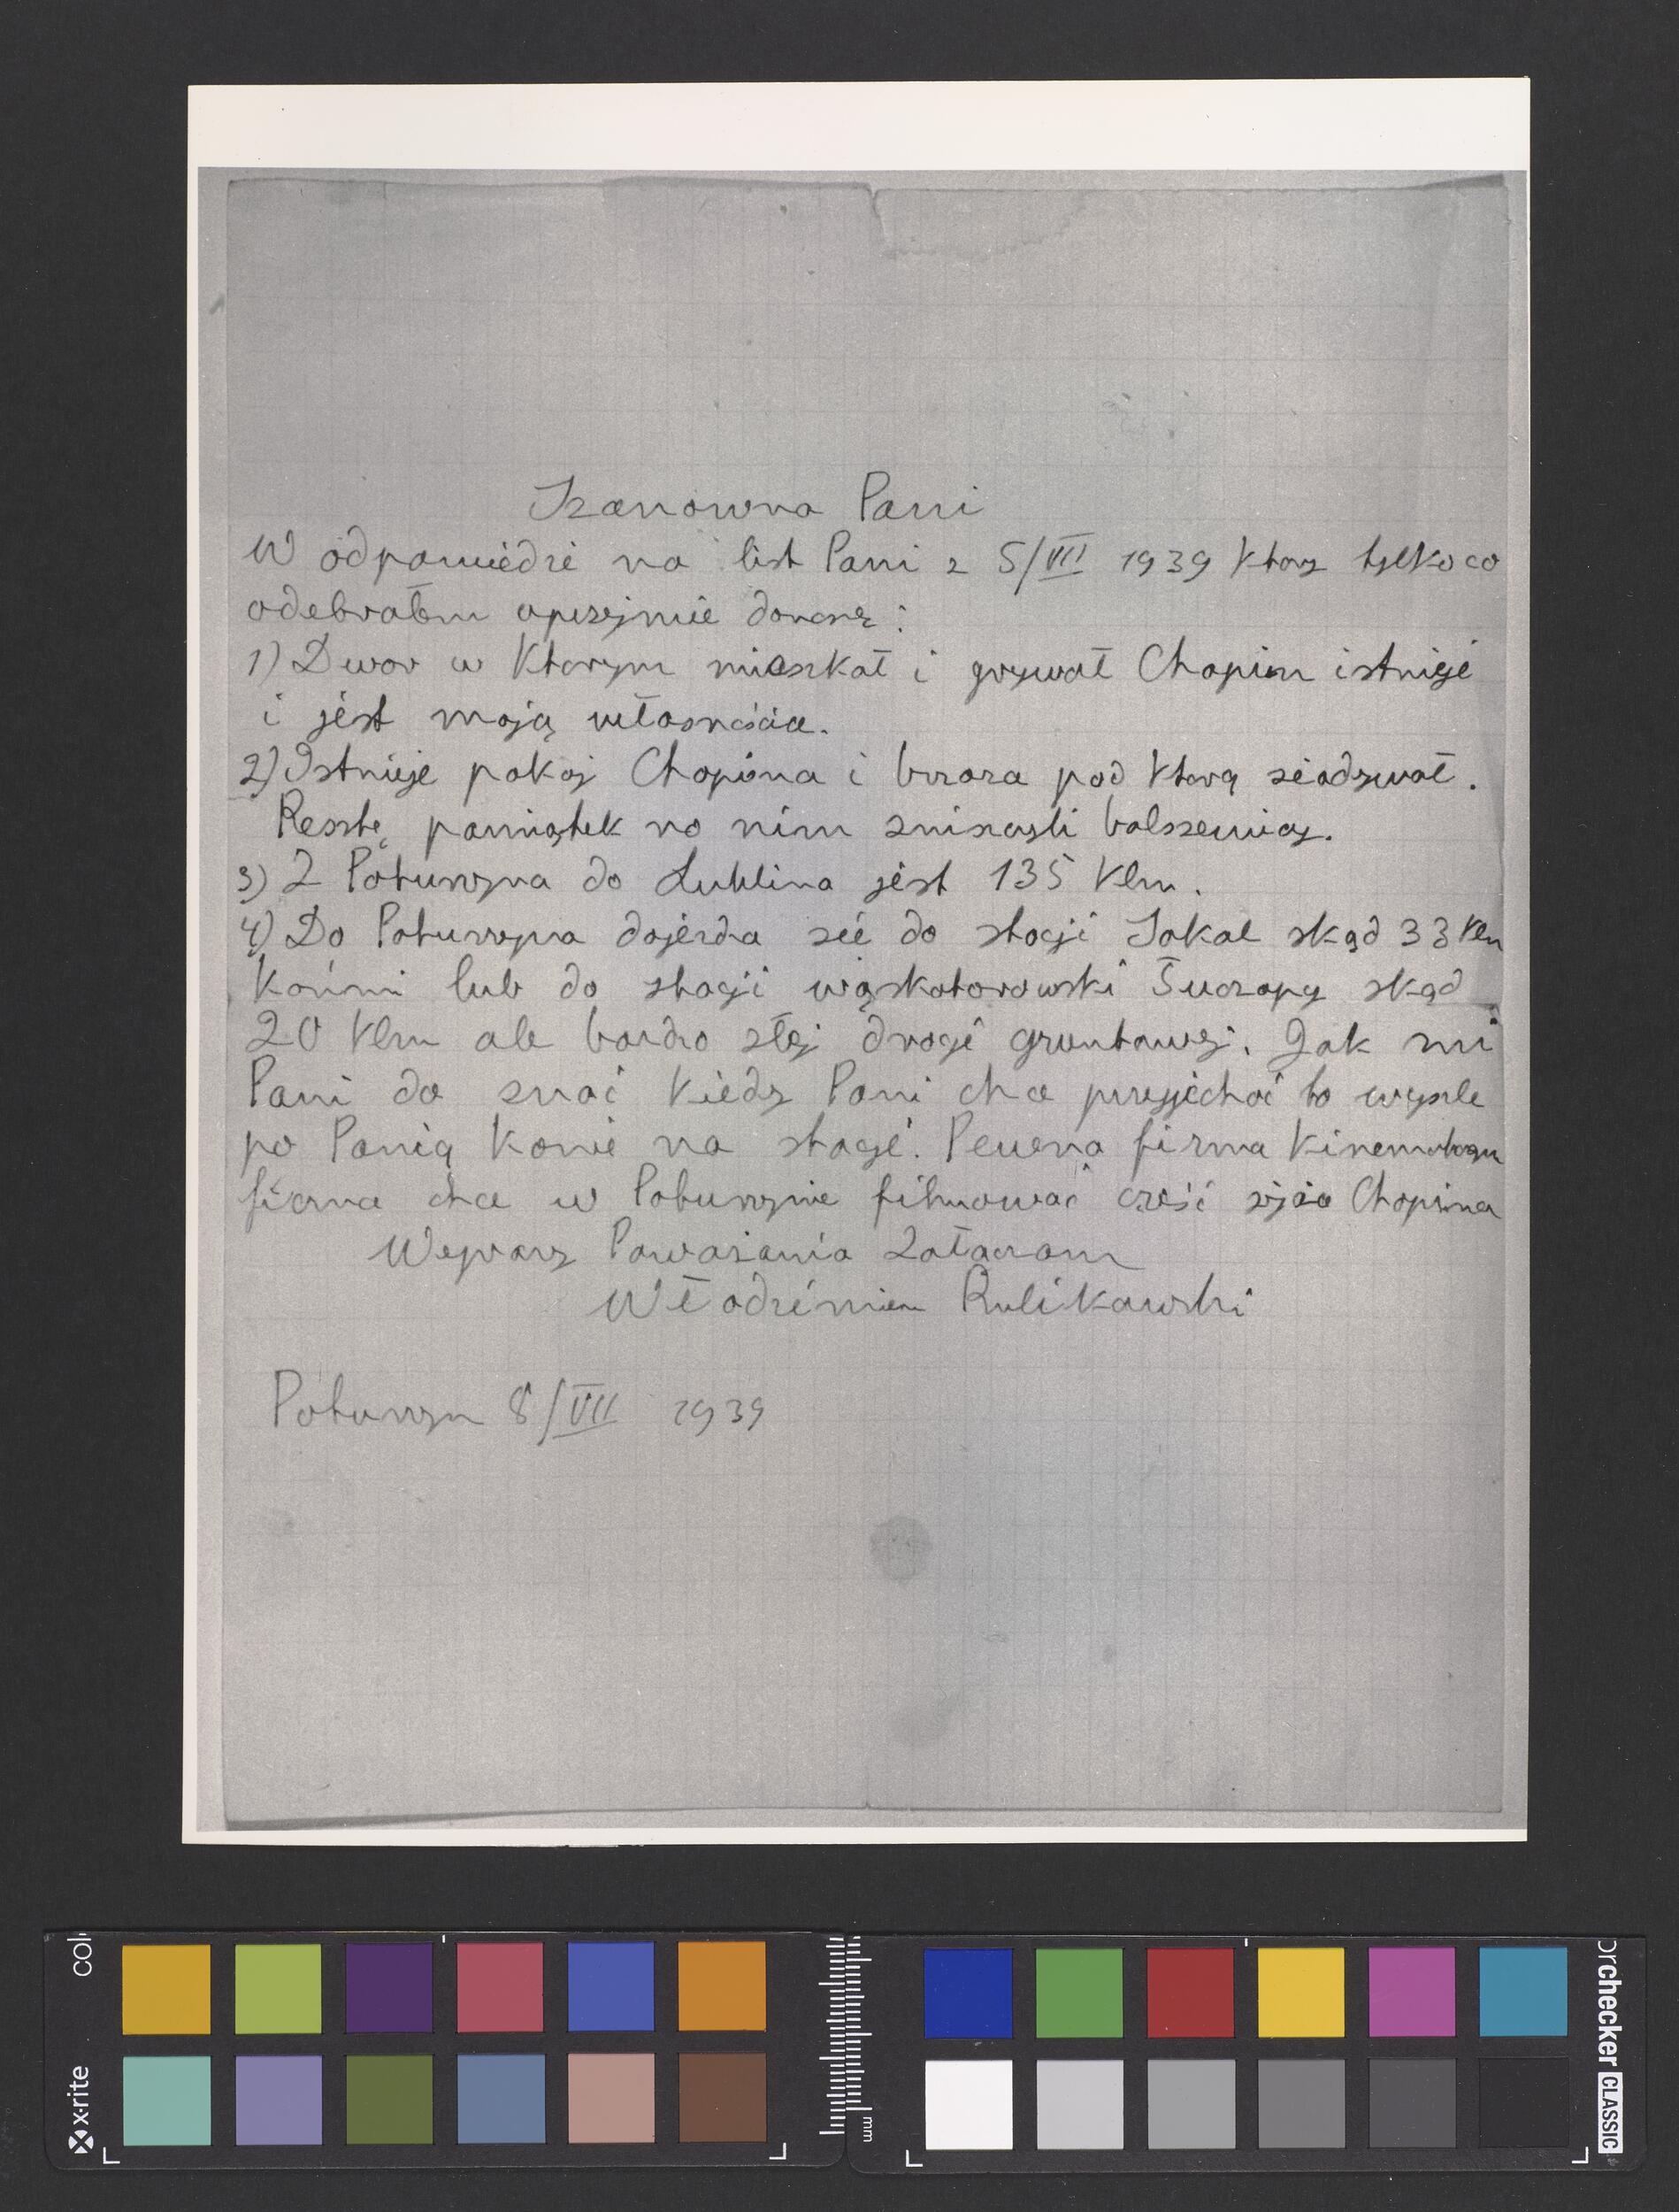 Szanowna Pani
W odpowiedzi na list Pani z 5/VII 1939 ktory tylko co
odebrałem uprzejmie donoszę:
1) Dwor w ktorym mieszkał i grywał Chopin istnieje
i jest moją własnościa.
2) Istnieje pokoj Chopina i brzoza pod ktorą siadywał.
Resztę pamiątek po nim zniszczyli bolszewicy.
3) Z Poturzyna do Lublina jest 135 klm.
4) Do Poturzyna dojezdza sie do stacji Sokal skąd 33 klm
końmi lub do stacji wąskotorowski Suczapy skąd
20 klm ale bardzo złej drogi gruntowej. Jak mi
Pani da znać kiedy Pani chce przyjechać to wysle
po Panią konie na stacje. Pewna firma kinematogra
ficzna chce w Poturzynie filmować cześć zycia Chopina
Wyrazy Powazania załaczam
Włodzimierz Rulikowski
Poturzyn 8/VII 1939
colo
x-rite
mm
orchecker CLASSIC